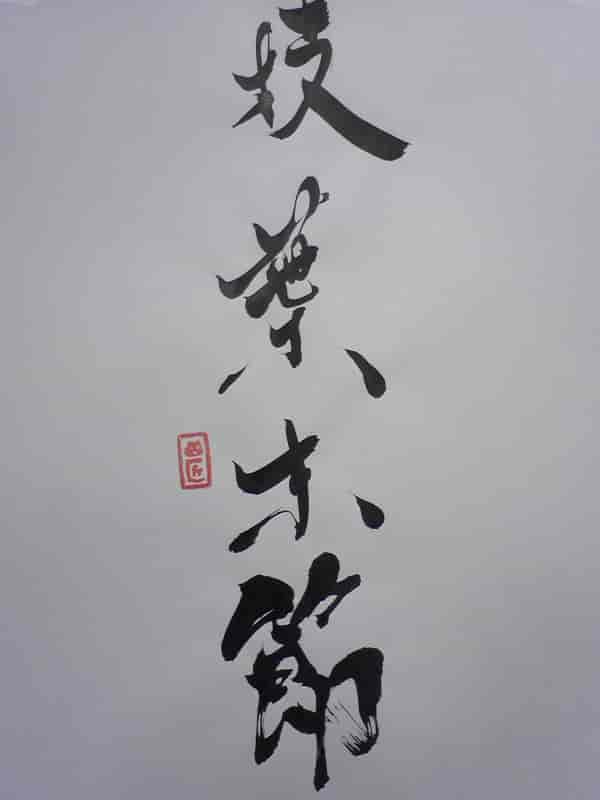 枝葉末節